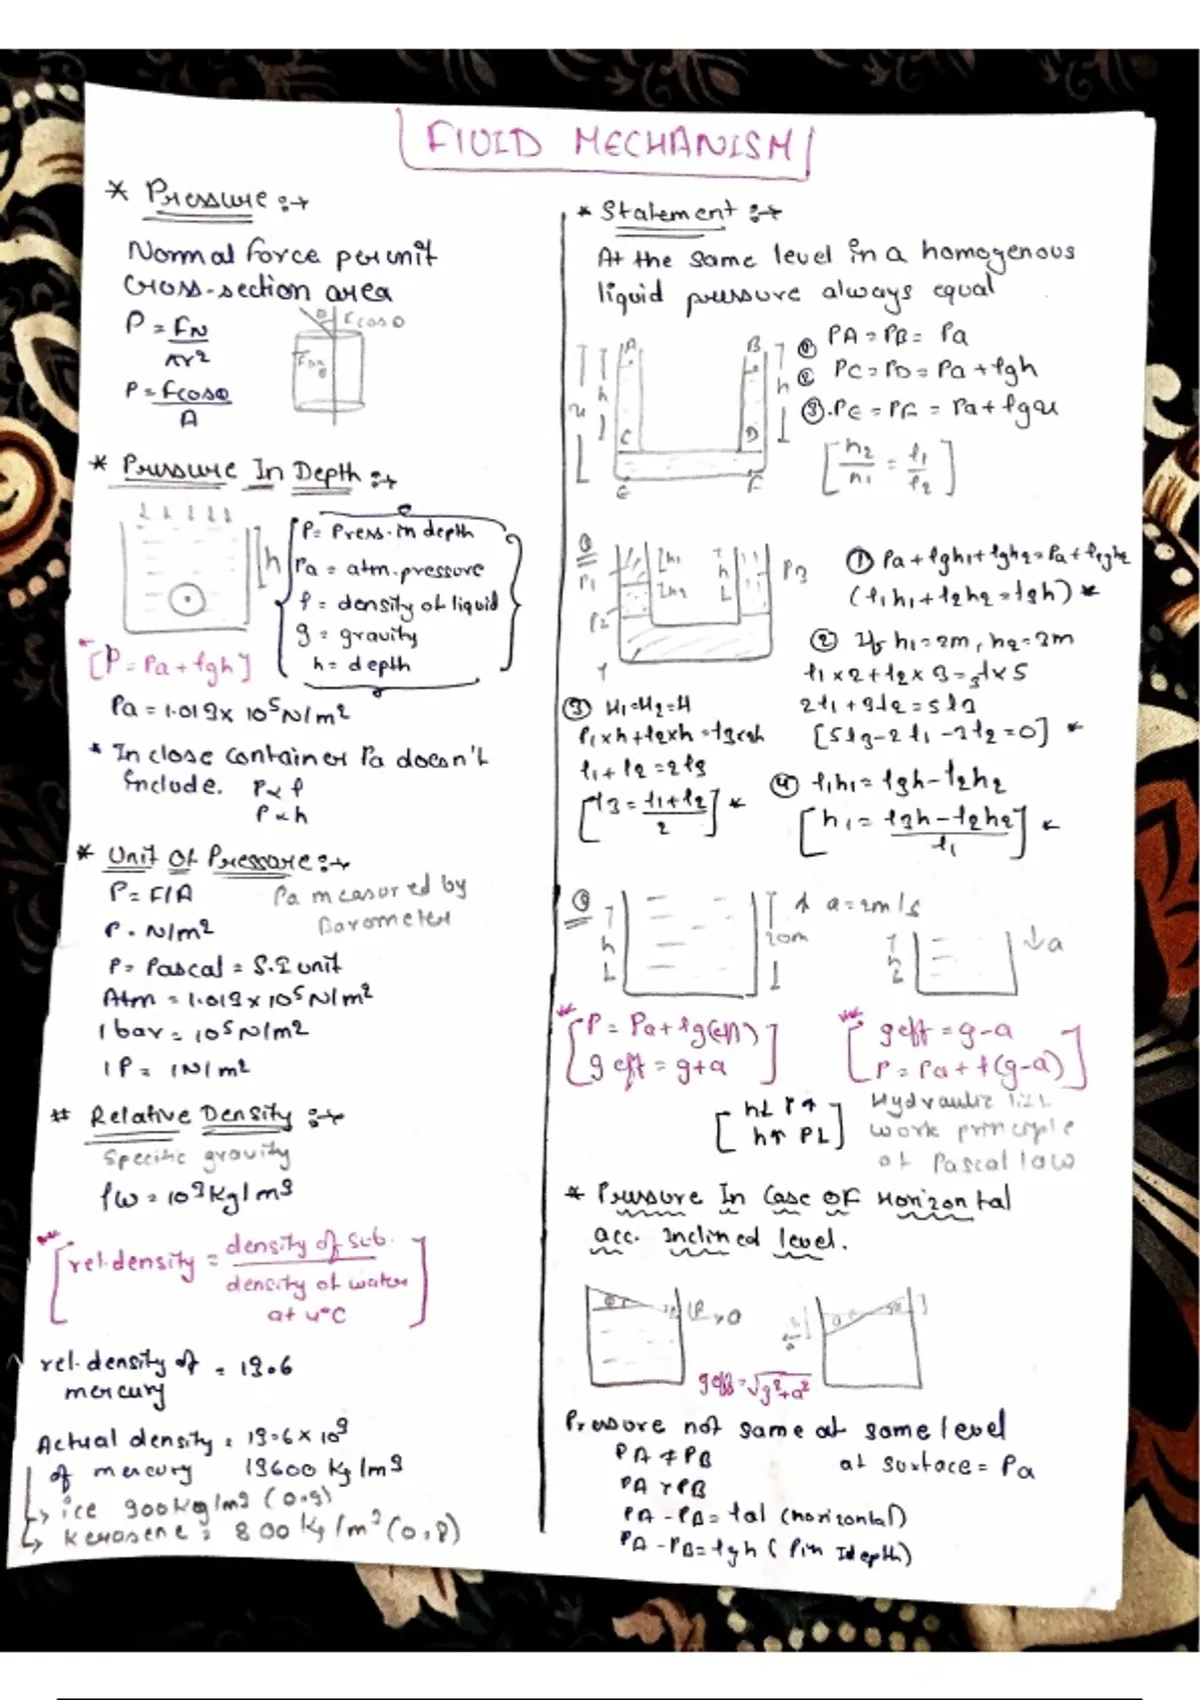 FIUID MECHANISM
* Pressure :→
Normal force per unit
Cross-section area
P = FN
πr²
F cos θ
P = Fcosθ
A
* Pressure In Depth :→
h
P = Press. in depth
Pa = atm. pressure
ρ = density of liquid
g = gravity
h = depth
[P = Pa + ρgh]
Pa = 1.013 x 10⁵ N/m²
* In close container Pa doesn't
include. P ∝ ρ
P ∝ h
* Unit Of Pressure :→
P = F/A
Pa measured by
Barometer
P = N/m²
P = Pascal = S.I unit
Atm = 1.013 x 10⁵ N/m²
1 bar = 10⁵ N/m²
1 P = 1 N/m²
# Relative Density :→
Specific gravity
ρw = 10³ Kg/m³
rel. density = density of sub.
density of water
at 4°C
rel. density of = 13.6
mercury
Actual density = 13.6 x 10³
of mercury 13600 Kg/m³
→ ice 900 kg/m³ (0.9)
→ Kerosene : 800 Kg/m³ (0.8)
* Statement :→
At the same level in a homogenous
liquid pressure always equal
A B
h h
C D
E F
① PA = PB = Pa
② PC = PD = Pa + ρgh
③ PE = PF = Pa + ρgx
[h2/h1 = ρ1/ρ2]
P1 h1 h P3
P2 h2
① Pa + ρgh1 + ρgh2 = Pa +
(ρ1h1 + ρ2h2 = ρ3h) *
② If h1 = 2m, h2 = 3m
ρ1 x 2 + ρ2 x 3 = ρ3 x 5
2ρ1 + 3ρ2 = 5ρ3
[5ρ3 - 2ρ1 - 3ρ2 = 0] *
③ H1 = H2 = H
ρ1 x h + ρ2 x h = ρ3 2h
ρ1 + ρ2 = 2ρ3
[ρ3 = ρ1 + ρ2 / 2] *
④ ρ1h1 = ρ3h - ρ2h2
[h1 = ρ3h - ρ2h2 / ρ1] *
h 20m ↑ a = 2m/s
h ↓a
[P = Pa + ρg(eff)
g eff = g + a]
[g eff = g - a
P = Pa + ρ(g - a)]
[h↓ P↑
h↑ P↓]
Hydraulic lift
work principle
of Pascal law
* Pressure In Case OF Horizontal
acc. Inclined level.
g eff = √g² + a²
Pressure not same at same level
PA ≠ PB
at surface = Pa
PA > PB
PA - PB = ρal (horizontal)
PA - PB = ρgh (P in depth)